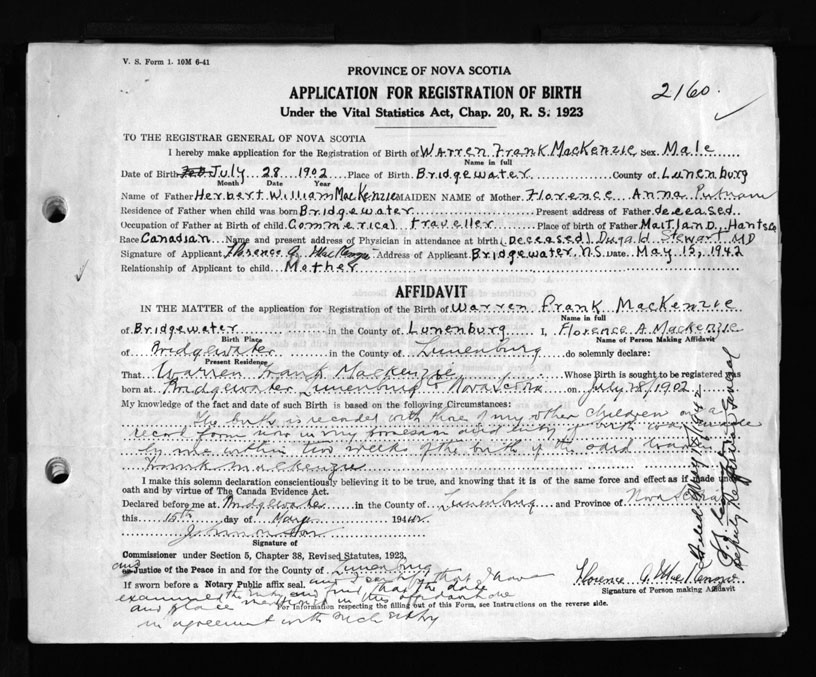 V. S. Form 1. 10M 6-41
PROVINCE OF NOVA SCOTIA
APPLICATION FOR REGISTRATION OF BIRTH
2160.
Under the Vital Statistics Act, Chap. 20, R. S. 1923
TO THE REGISTRAR GENERAL OF NOVA SCOTIA
I hereby make application for the Registration of Birth of Warren Frank MacKenzie Sex Male
Name in full
Date of Birth July 28 1902 Place of Birth Bridgewater County of Lunenburg
Month Date Year
Name of Father Herbert William MacKenzie MAIDEN NAME of Mother Florence Anna Putnam
Residence of Father when child was born Bridgewater Present address of Father deceased
Occupation of Father at Birth of child Commerical traveller Place of birth of Father Maitland, Hants Co
Race Canadian Name and present address of Physician in attendance at birth (Deceased) Dugald Stewart MD
Signature of Applicant Florence A. MacKenzie Address of Applicant Bridgewater, N.S. Date May 15, 1942
Relationship of Applicant to child Mother
AFFIDAVIT
IN THE MATTER of the application for Registration of the Birth of Warren Frank MacKenzie
Name in full
of Bridgewater in the County of Lunenburg I, Florence A. MacKenzie
Birth Place Name of Person Making Affidavit
of Bridgewater in the County of Lunenburg do solemnly declare:
Present Residence
That Warren Frank MacKenzie Whose Birth is sought to be registered was
born at Bridgewater Lunenburg Co Nova Scotia on July 28, 1902
My knowledge of the fact and date of such Birth is based on the following Circumstances:
The birth is recorded with those of my other children on a
record form now in my possession and entry of birth was made
by me within two weeks of the birth of the said Warren
Frank MacKenzie
I make this solemn declaration conscientiously believing it to be true, and knowing that it is of the same force and effect as if made under
oath and by virtue of The Canada Evidence Act.
Declared before me at Bridgewater in the County of Lunenburg and Province of Nova Scotia
this 15th day of May 1942
Signature of
Commissioner under Section 5, Chapter 38, Revised Statutes, 1923,
and
or Justice of the Peace in and for the County of Lunenburg
If sworn before a Notary Public affix seal. and I certify that I have
Florence A. MacKenzie
Signature of Person making Affidavit
examined the entry and find that the date
and place mentioned in this affidavit are
For Information respecting the filling out of this Form, see Instructions on the reverse side.
in agreement with such entry
May 18, 1942
Deputy Registrar General